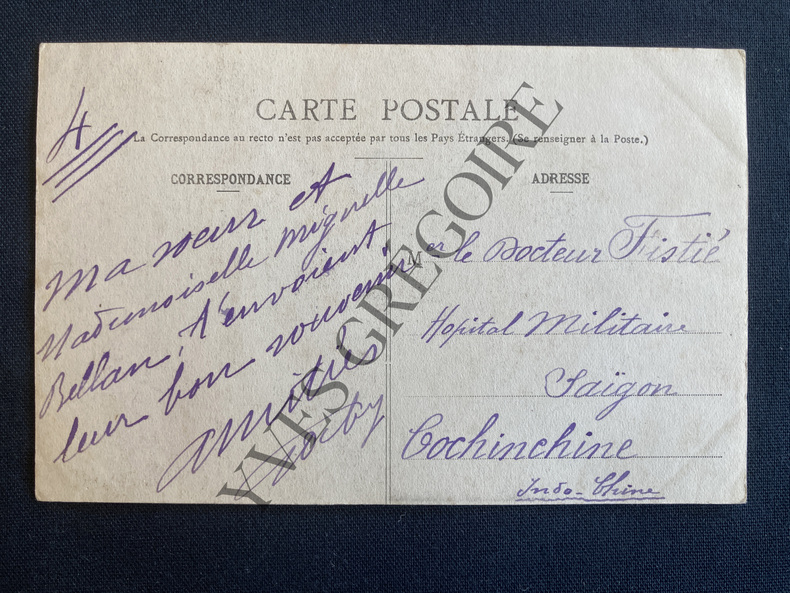 CARTE POSTALE
La Correspondance au recto n'est pas acceptée par tous les Pays Étrangers. (Se renseigner à la Poste.)
4
CORRESPONDANCE
Ma soeur et
Mademoiselle Mignelle
Bellan, t'envoient
leur bon souvenir
Amitiés
ADRESSE
M er le Docteur Fistié
Hopital Militaire
Saïgon
Cochinchine
Indo-Chine
YVES GREGOIRE